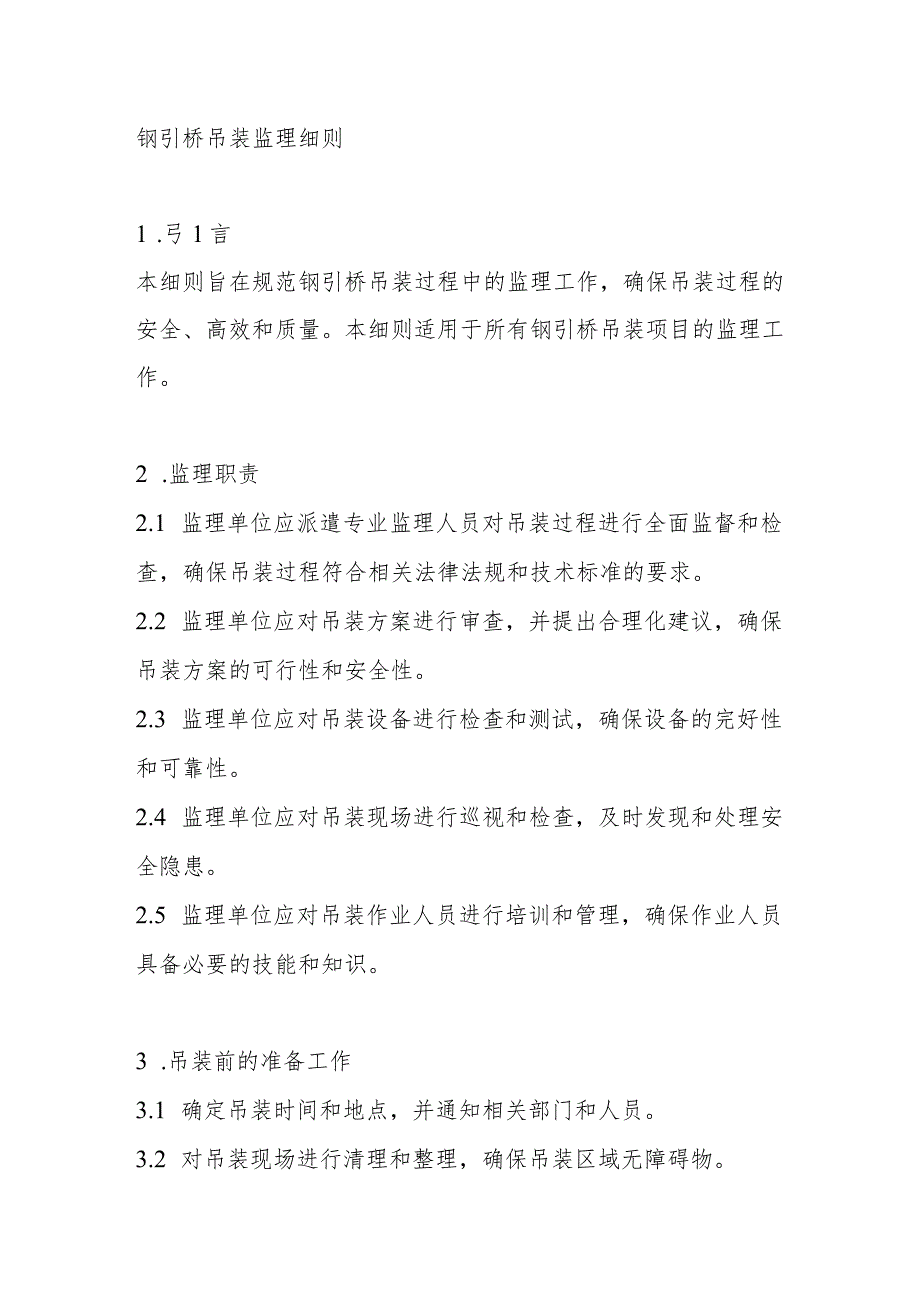 钢引桥吊装监理细则
1 .弓1言
本细则旨在规范钢引桥吊装过程中的监理工作，确保吊装过程的
安全、高效和质量。本细则适用于所有钢引桥吊装项目的监理工
作。
2 .监理职责
2.1 监理单位应派遣专业监理人员对吊装过程进行全面监督和检
查，确保吊装过程符合相关法律法规和技术标准的要求。
2.2 监理单位应对吊装方案进行审查，并提出合理化建议，确保
吊装方案的可行性和安全性。
2.3 监理单位应对吊装设备进行检查和测试，确保设备的完好性
和可靠性。
2.4 监理单位应对吊装现场进行巡视和检查，及时发现和处理安
全隐患。
2.5 监理单位应对吊装作业人员进行培训和管理，确保作业人员
具备必要的技能和知识。
3 .吊装前的准备工作
3.1 确定吊装时间和地点，并通知相关部门和人员。
3.2 对吊装现场进行清理和整理，确保吊装区域无障碍物。